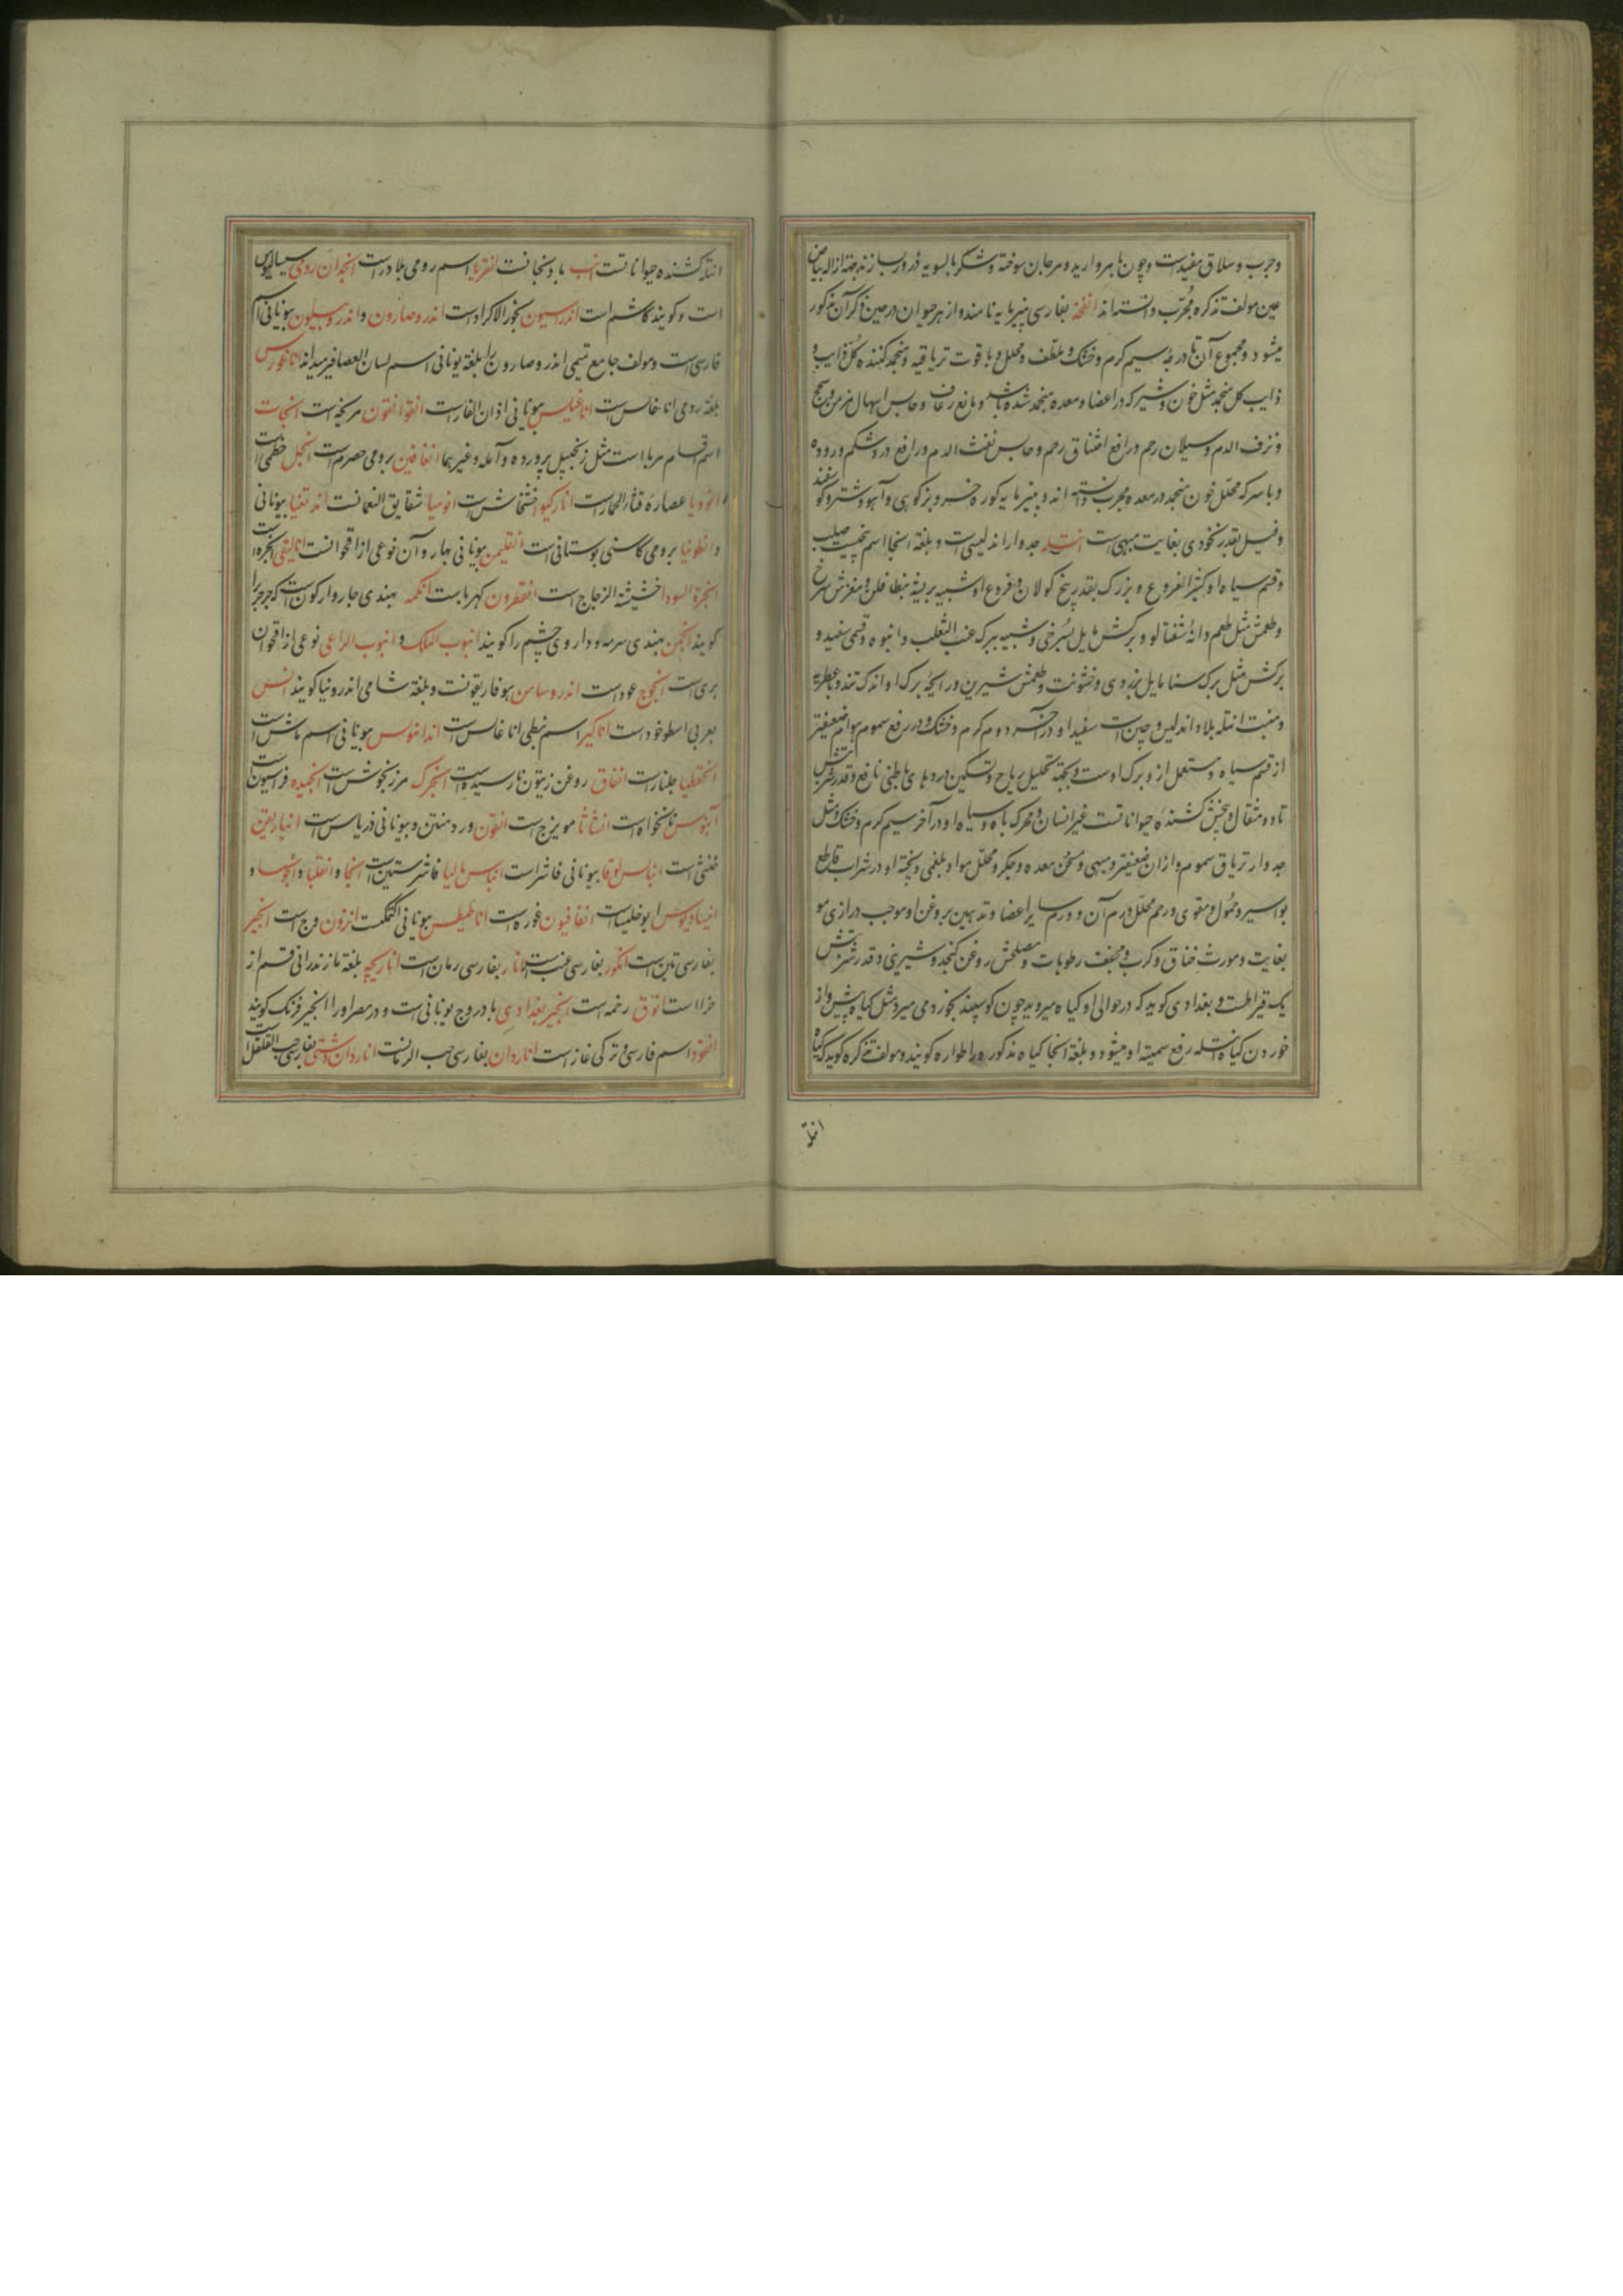 وجرب و سلاق مفیدست و چون با مروارید و مرجان سوخته و شکر بالسویه ذرور سازند جهة ازاله بیاض
عین مولف تذکره مجرب دانسته‌اند انفحه بفارسی پنیرمایه نامند و از هر حیوان در حین ذکر آن مذکور
میشود و مجموع آن تا درجهٔ سیم گرم و خشک و ملطف و محلل و با قوت تریاقیه و منجمد کننده کل ذایب و
ذایب کل منجمد مثل خون و شیر که در اعضا و معده منجمد شده باشد و مانع رعاف و حابس اسهال مزمن و سحج
و نزف الدم و سیلان رحم و رافع اختناق رحم و حابس نفث الدم و رافع درد شکم و روده
و با سرکه محلل خون منجمد در معده مجرب دانسته‌اند و پنیرمایه کوره خر و بز کوهی و آهو و شتر و گوسفند
و فیل بقدر نخودی بغایت مبهی است انتله جدوار اندلسی است و بلغة آنجا اسم بیخیست صلب
و قسم سیاه او کثیر الفروع و بزرگ بقدر بیخ کولان و فروع او شبیه بریشهٔ بنطافلن و مغزش سرخ
و طعمش مثل طعم دانهٔ شفتالو و برگش مایل بسرخی و شبیه ببرگ عنب الثعلب و انبوه و قسمی سفید و
برگش مثل برگ سنا مایل بزردی و خشونت و طعمش شیرین و رایحهٔ برگ او اندک تند و عطریه
و منبت انتله بلاد اندلس و چین است سفید او در آخر دوم گرم و خشک و در رفع سموم هوام ضعیفتر
از قسم سیاه و مستعمل از و برگ اوست و بجهة تحلیل ریاح و تسکین دردهای باطنی نافع و قدر شربتش
تا دو مثقال و بیخش کشندهٔ حیواناتست غیر انسان و محرک باه و سیاه او در آخر سیم گرم و خشک و مثل
جدوار تریاق سموم و از آن ضعیفتر و مبهی و مسخن معده و جگر و محلل مواد بلغمی و پخته او در شراب قاطع
بواسیر و حمول و مقوی و رحم محلل ورم آن و ورم سایر اعضا و تدهین بروغن او موجب درازی مو
بغایت و مورث خناق و کرب و مجفف رطوبات و مصلحش روغن کنجد و شیرینی و قدر شربتش
یک قیراطست و بغدادی گوید که در حوالی او گیاه میروید چون گوسپند بخورد می میرد مثل گیاه بیش و از
خوردن گیاه انتله رفع سمیت او میشود و بلغة آنجا گیاه مذکور را طواره گویند و مولف تذکره گوید که گیاه
انتله
انتله کشنده حیواناتست انب بادنجانست انقریا اسم رومی بلادر است انجدان رومی سیسالیوس
است و گویند کاشم است اندراسیون بخور الاکراد است اندروصارون و اندروسیلون بیونانی اسم
فارسی است و مولف جامع تمیمی اندروصارون را بلغة یونانی اسم لسان العصافیر میداند اناغورس
بلغة رومی اناغالس است اناغیلس بیونانی اذان الفار است انقوانقون مریخه است انبجات
اسم اقسام مربا است مثل زنجبیل پرورده و آمله و غیرهما انغافین برومی حصرم است انجل خطمی است
انودیا عصارهٔ قثاء الحمار است انارکیو خشخاش است انومیا شقایق النعمانست اندتغیا بیونانی
و انطونیا برومی کاسنی بوستانی است انقلیمن بیونانی بهار و آن نوعی از اقحوانست انالیقی انجره است
انجرة السودا حشیشة الزجاج است انقطرون کهرباست انکمه بهندی جاروارکون است که جرجیر را
گویند انجن بهندی سرمه و داروی چشم را گویند انبوب الملک و انبوب الراعی نوعی از اقحوان
بری است انجوج عود است اندروسامن هوفاریقونست و بلغة شامی اندرونیا گویند انس
بعربی اسطوخودست اناکیر اسم نبطی اناغالس است اندانفوس بیونانی اسم ماش است
انخقلیا جلنار است انفاق روغن زیتون نارسیده است انجرک مرزنجوش است انجبیده فراسیون است
آینوس نانخواه است انشاثا مویزج است انقون ورد منتن و بیونانی ذریاس است انبادیقن
خنثی است انبالس لوقا بیونانی فاشرا است انبالس مالیا فاشرستین است انجا و انقلیا و انجوسا و
انبسادیوس ابوخلسا است انغافیون غوره است اناطیلس بیونانی اکتمکت است انزون وج است انجیر
بفارسی تین است انگور بفارسی عنب است انار بفارسی رمان است اناریجه بلغة مازندرانی قسم از
خزا است انوق رخمه است انجیر بغدادی بادروج یونانی است و در مصر او را انجیر فرنک گویند
انقود اسم فارسی و ترکی غاز است اناردان بفارسی حب الرمانست اناردان دشتی بفارسی حب القلقل است